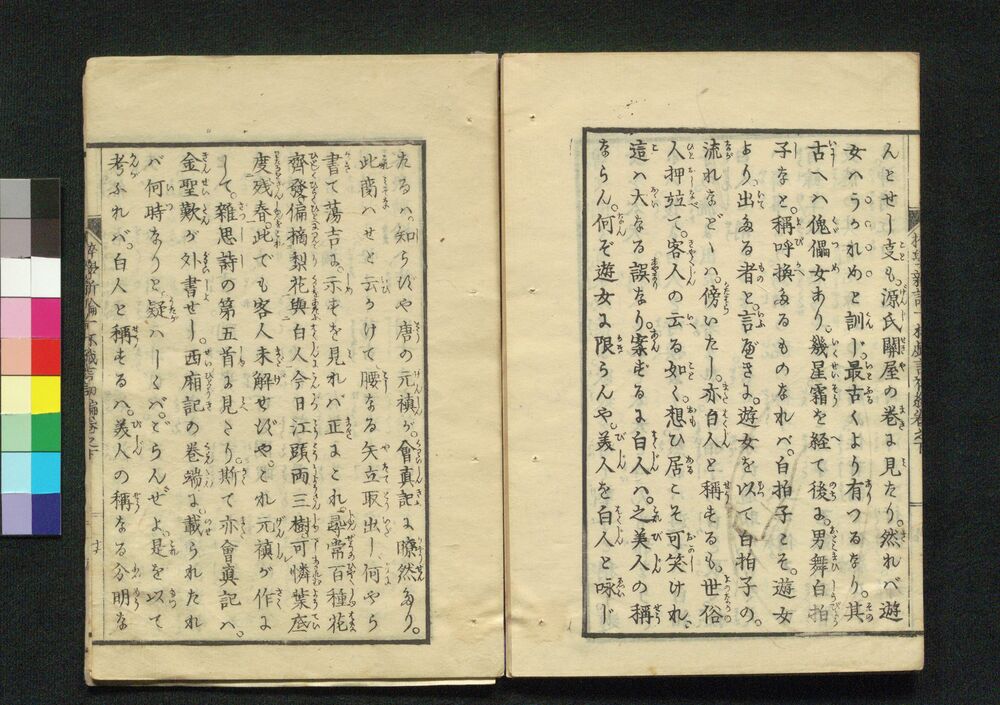 んとせし支も。源氏關屋の巻に見たり。然れバ遊
女ハうかれめと訓じ。最古くより有つるなり。其
古へハ傀儡女あり。幾星霜を経て後に。男舞白拍
子など。稱呼換るものなれバ。白拍子こそ。遊女
より出たる者と言べきに。遊女を以て白拍子の。
流れなどゝハ。傍いたし。亦白人と稱するも。世俗
人押竝て。客人の云る如く。想ひ居こそ可笑けれ。
這ハ大なる誤なり。案ずるに白人ハ。之美人の稱
ならん。何ぞ遊女に限らんや。美人を白人と咏じ
たるハ。知らずや唐の元稹が。會真記に瞭然たり。
此蘭ハせと云かけて腰なる矢立取出し。何やら
書て蕩吉に。示すを見れバ正にこれ。尋常百種花
齊發。偏摘梨花與白人。今日江頭両三樹。可憐葉底
度残春。此でも客人未解せずや。これ元稹が作に
して。雑思詩の第五首に見えたり。斯て亦會真記ハ。
金聖歎が外書せし。西廂記の巻端に。載られたれ
バ何時なりと疑ハしくバ。ごらんぜよ。是を以て
考ふれバ。白人と稱するハ。美人の稱なる分明な